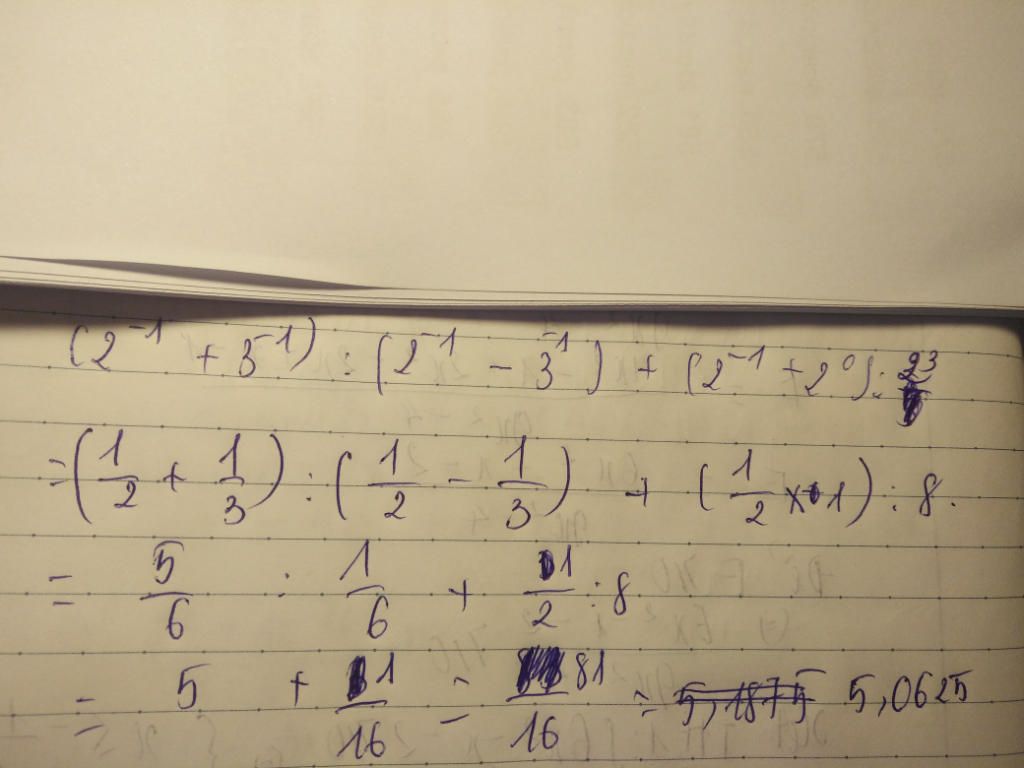 (2⁻¹ + 3⁻¹) : (2⁻¹ - 3⁻¹) + (2⁻¹ + 2⁰) : 2³
= (1/2 + 1/3) : (1/2 - 1/3) + (1/2 x 1) : 8.
= 5/6 : 1/6 + 1/2 : 8
= 5 + 1/16 = 81/16 = 5,1875 5,0625